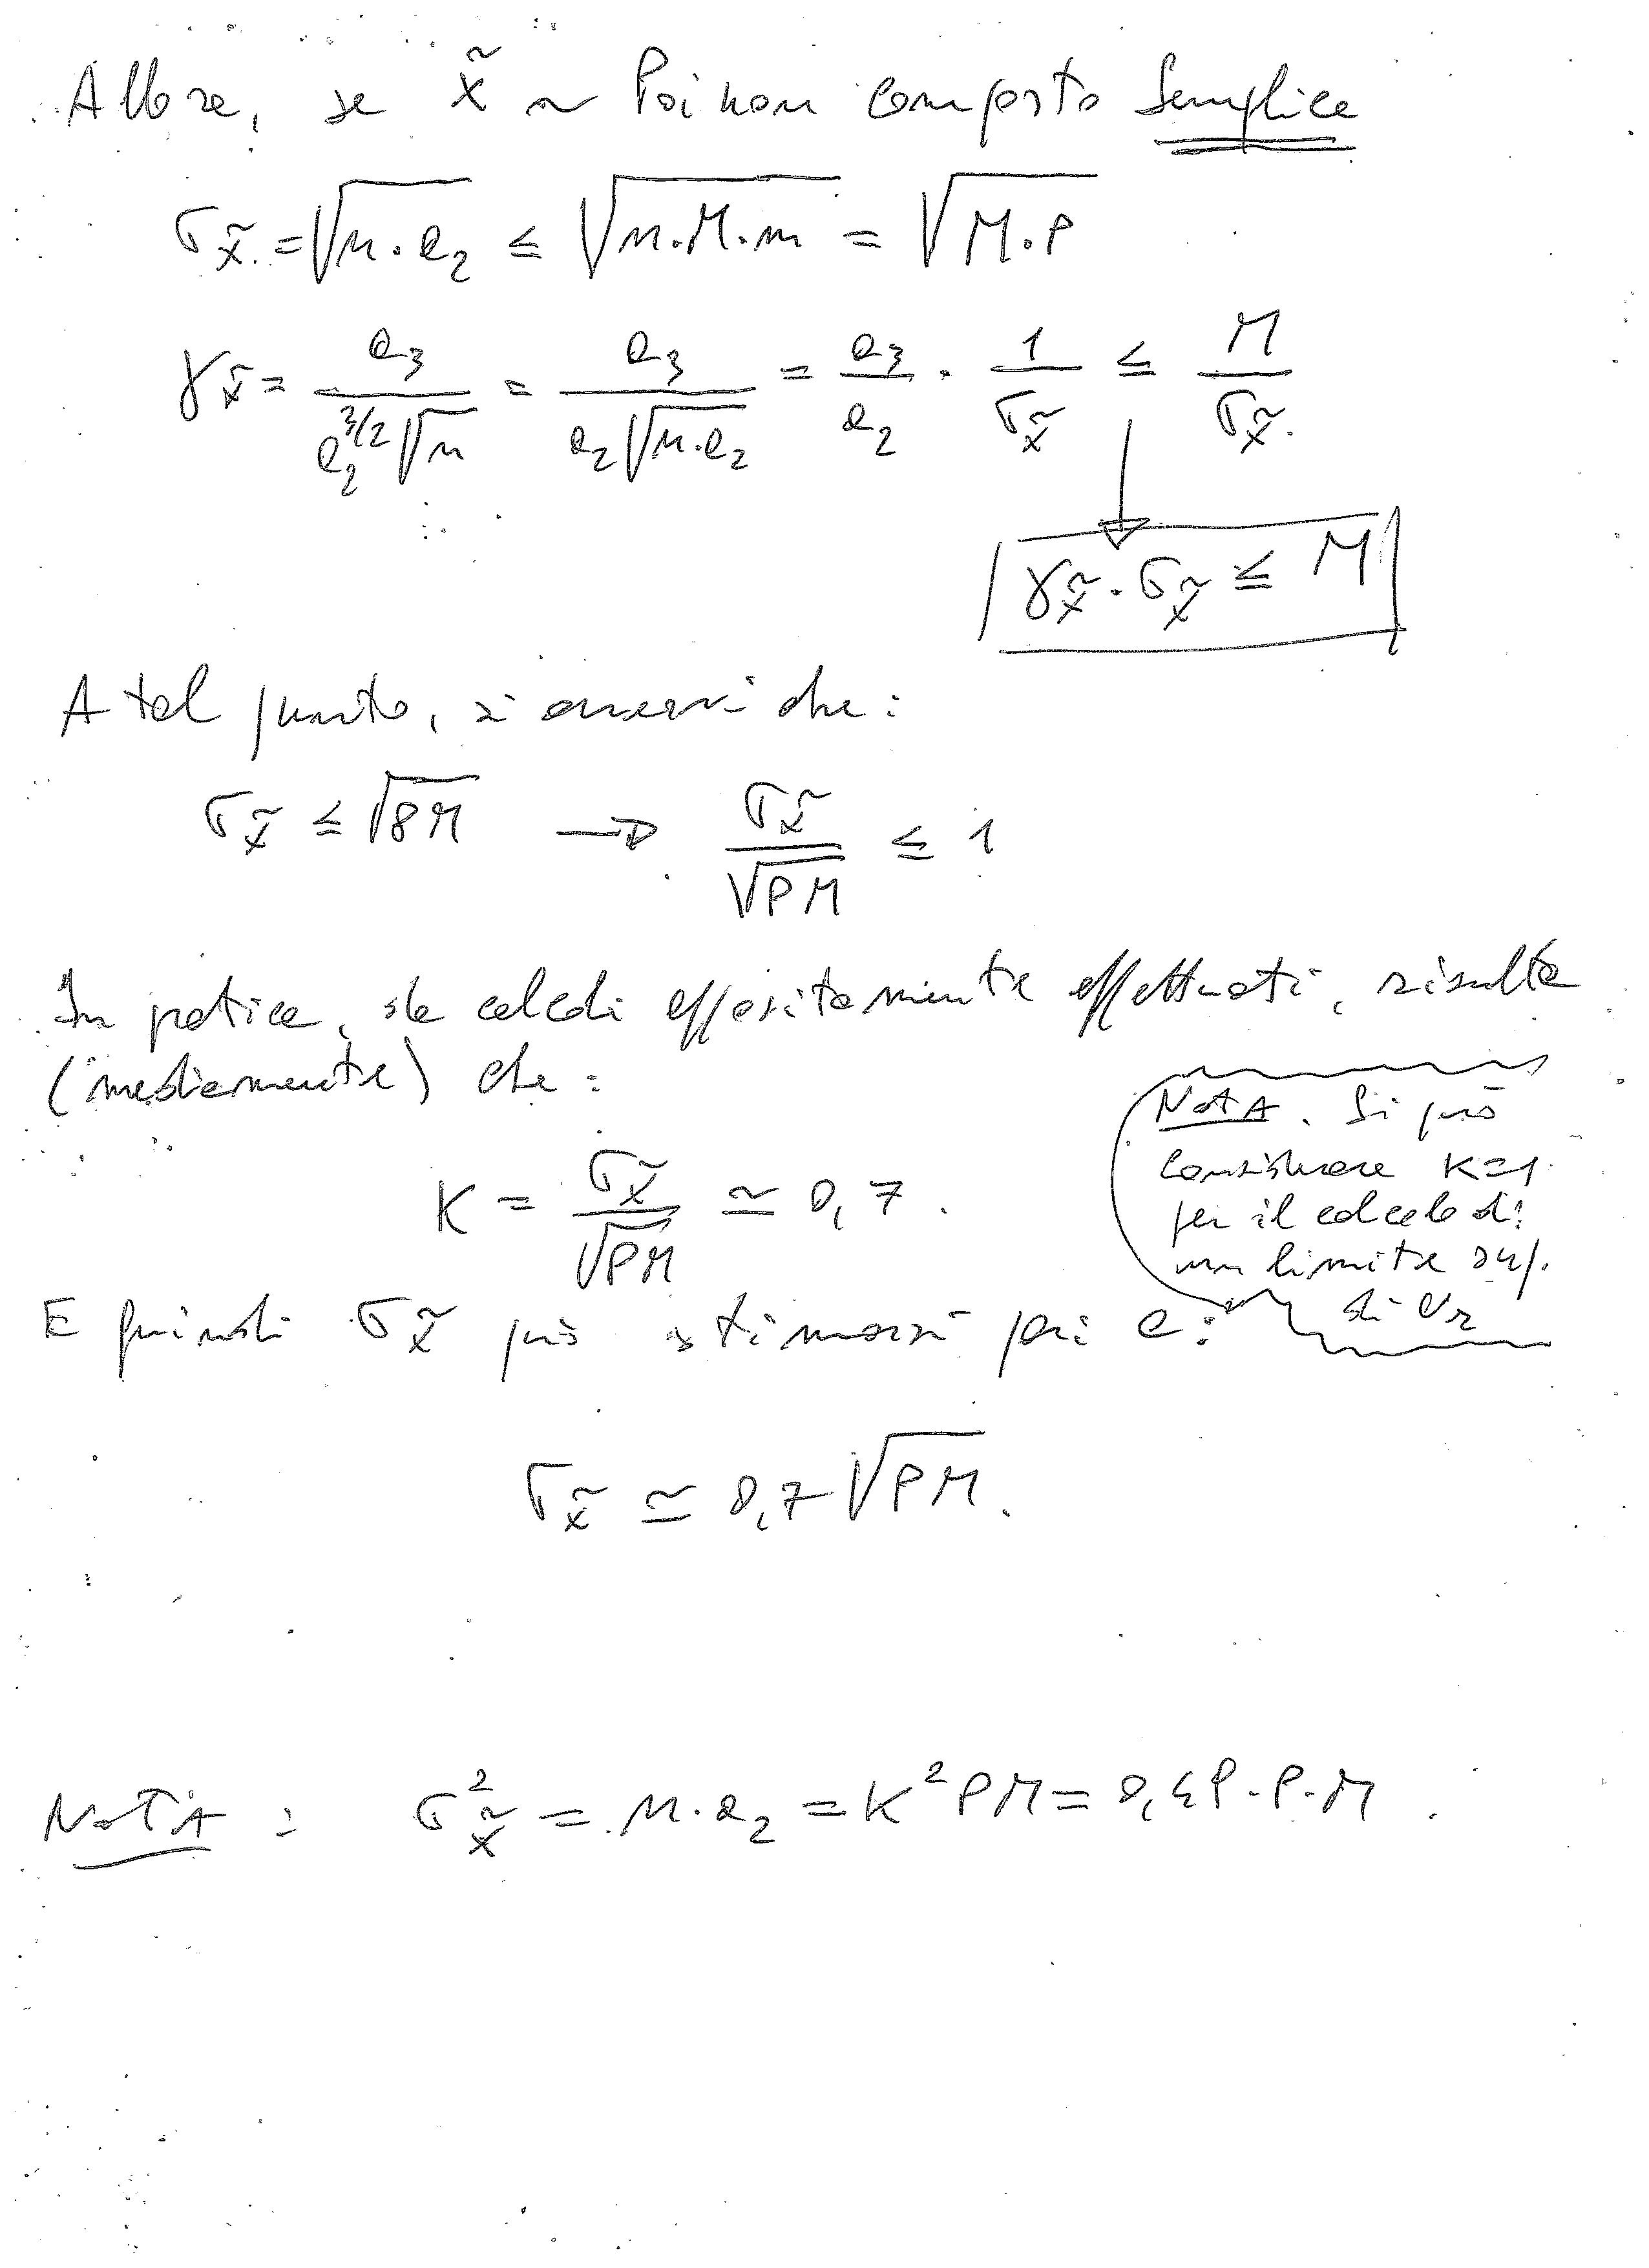 Allora, se x̃ ~ Poisson composto Semplice
σx̃ = √(n·a₂) ≤ √(n·M·m) = √(M·P)
γx̃ = a₃/(a₂^(3/2) √n) = a₃/(a₂ √(n·a₂)) = a₃/a₂ · 1/σx̃ ≤ M/σx̃.
γx̃ · σx̃ ≤ M
A tal punto, si osservi che:
σx̃ ≤ √(PM) → σx̃/√(PM) ≤ 1
In pratica, da calcoli appositamente effettuati, risulta
(mediamente) che:
K = σx̃/√(PM) ≃ 0,7.
NOTA. Si può
considerare K=1
per il calcolo di
un limite sup.
di Ur
E quindi σx̃ può stimarsi pari a:
σx̃ ≃ 0,7 √(PM).
NOTA: σ²x̃ = n·a₂ = K² PM = 0,49·P·M.